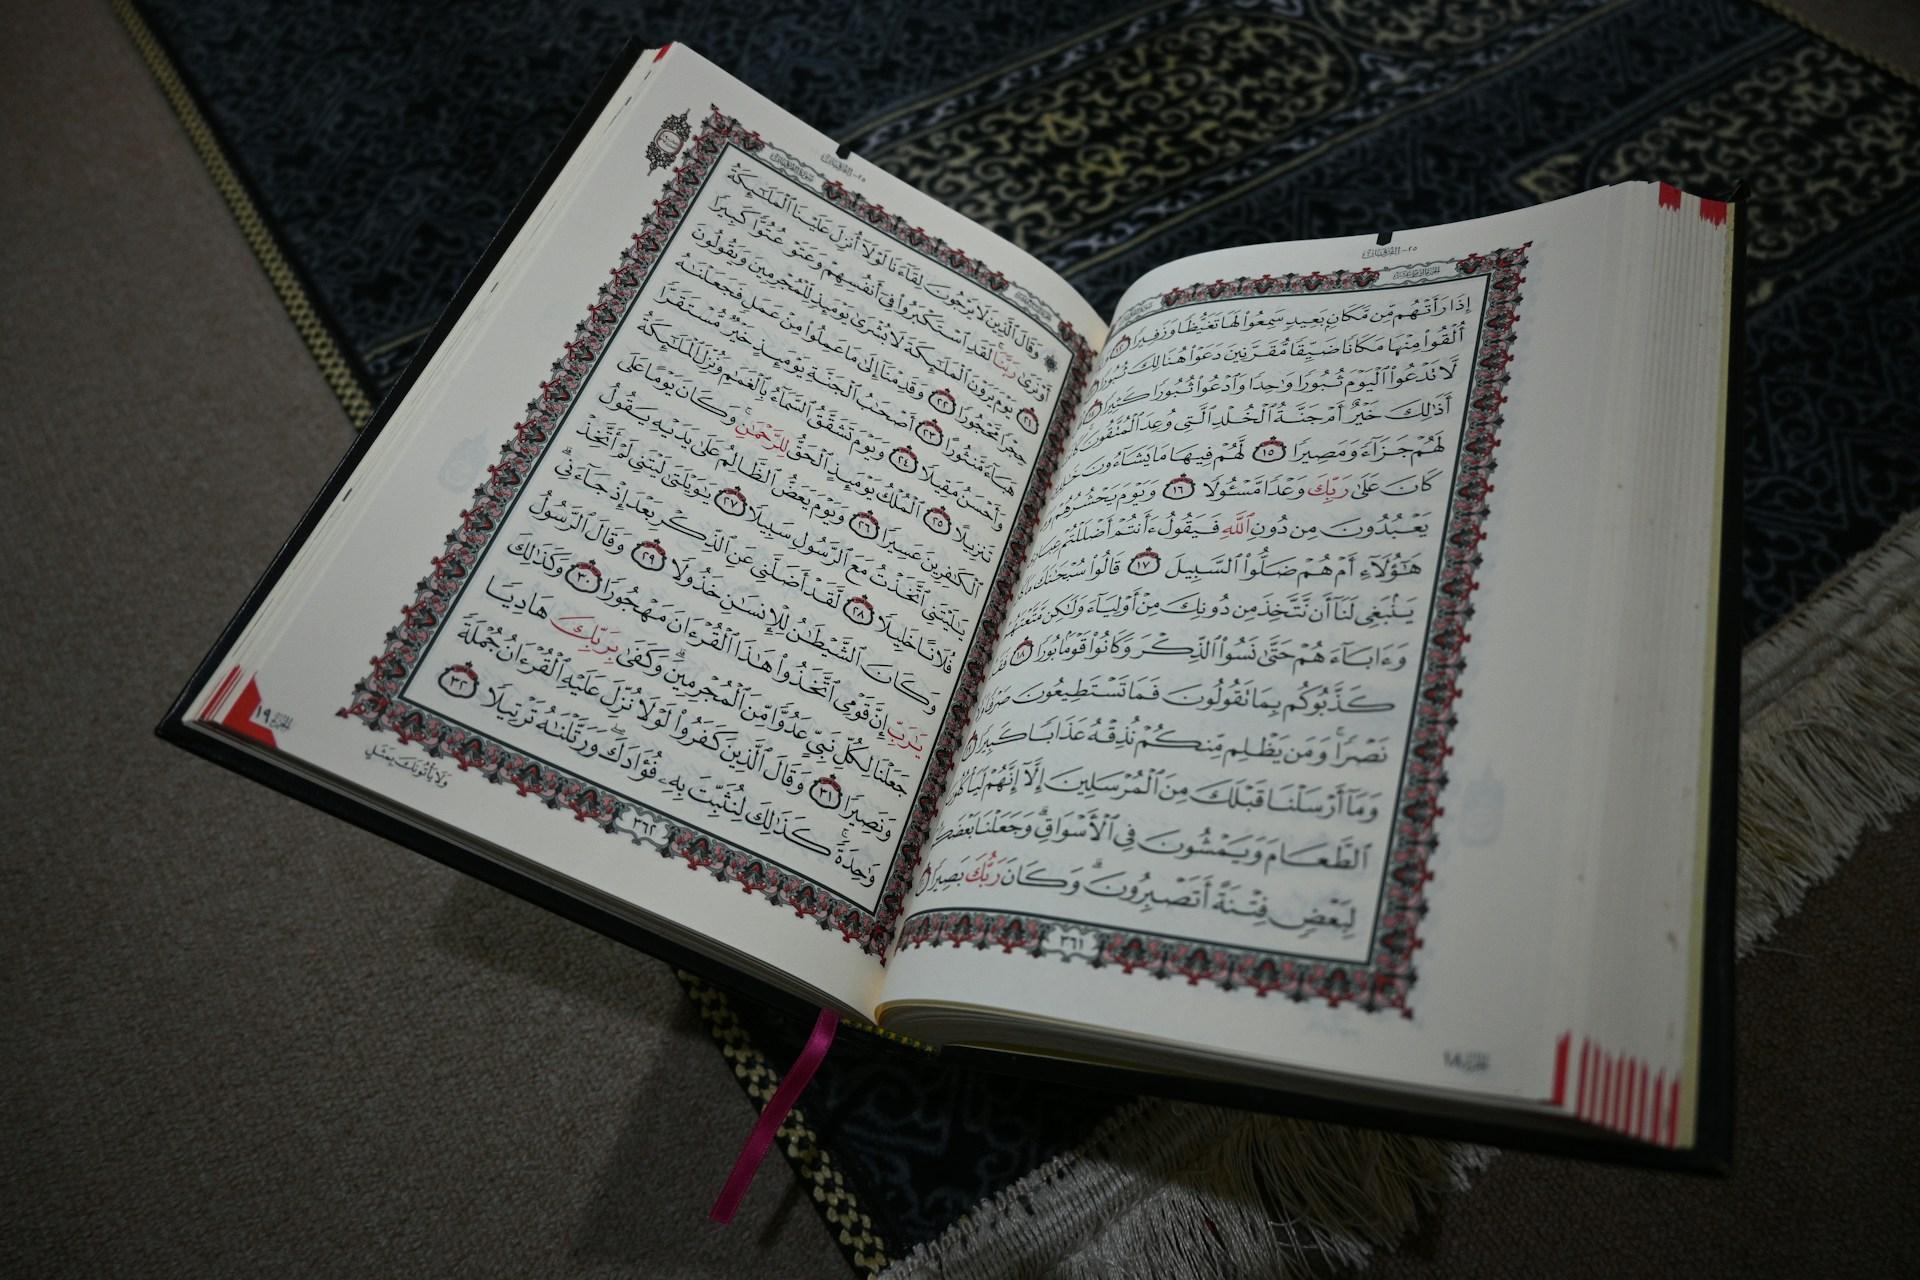 إِذَا رَأَتْهُم مِّن مَّكَانٍ بَعِيدٍ سَمِعُوا۟ لَهَا تَغَيُّظًا وَزَفِيرًا ١٢
أُلْقُوا۟ مِنْهَا مَكَانًا ضَيِّقًا مُّقَرَّنِينَ دَعَوْا۟ هُنَالِكَ ثُبُورًا
لَّا تَدْعُوا۟ ٱلْيَوْمَ ثُبُورًا وَٰحِدًا وَٱدْعُوا۟ ثُبُورًا كَثِيرًا
أَذَٰلِكَ خَيْرٌ أَمْ جَنَّةُ ٱلْخُلْدِ ٱلَّتِى وُعِدَ ٱلْمُتَّقُونَ
لَهُمْ جَزَآءً وَمَصِيرًا ١٥ لَّهُمْ فِيهَا مَا يَشَآءُونَ
كَانَ عَلَىٰ رَبِّكَ وَعْدًا مَّسْـُٔولًا ١٦ وَيَوْمَ يَحْشُرُهُمْ
يَعْبُدُونَ مِن دُونِ ٱللَّهِ فَيَقُولُ ءَأَنتُمْ أَضْلَلْتُمْ
هَـٰٓؤُلَآءِ أَمْ هُمْ ضَلُّوا۟ ٱلسَّبِيلَ ١٧ قَالُوا۟ سُبْحَـٰنَكَ مَا كَانَ
يَنۢبَغِى لَنَآ أَن نَّتَّخِذَ مِن دُونِكَ مِنْ أَوْلِيَآءَ وَلَـٰكِن مَّتَّعْتَهُمْ
وَءَابَآءَهُمْ حَتَّىٰ نَسُوا۟ ٱلذِّكْرَ وَكَانُوا۟ قَوْمًۢا بُورًا ١٨
كَذَّبُوكُم بِمَا تَقُولُونَ فَمَا تَسْتَطِيعُونَ صَرْفًا
نَصْرًا ۚ وَمَن يَظْلِم مِّنكُمْ نُذِقْهُ عَذَابًا كَبِيرًا
وَمَآ أَرْسَلْنَا قَبْلَكَ مِنَ ٱلْمُرْسَلِينَ إِلَّآ إِنَّهُمْ لَيَأْكُلُونَ
ٱلطَّعَامَ وَيَمْشُونَ فِى ٱلْأَسْوَاقِ ۗ وَجَعَلْنَا بَعْضَكُمْ
لِبَعْضٍ فِتْنَةً أَتَصْبِرُونَ ۗ وَكَانَ رَبُّكَ بَصِيرًا
٣٦١
الجزء ١٨
۞ وَقَالَ ٱلَّذِينَ لَا يَرْجُونَ لِقَآءَنَا لَوْلَآ أُنزِلَ عَلَيْنَا ٱلْمَلَـٰٓئِكَةُ
أَوْ نَرَىٰ رَبَّنَا ۗ لَقَدِ ٱسْتَكْبَرُوا۟ فِىٓ أَنفُسِهِمْ وَعَتَوْ عُتُوًّا كَبِيرًا
٢١ يَوْمَ يَرَوْنَ ٱلْمَلَـٰٓئِكَةَ لَا بُشْرَىٰ يَوْمَئِذٍ لِّلْمُجْرِمِينَ وَيَقُولُونَ
حِجْرًا مَّحْجُورًا ٢٢ وَقَدِمْنَآ إِلَىٰ مَا عَمِلُوا۟ مِنْ عَمَلٍ فَجَعَلْنَـٰهُ
هَبَآءً مَّنثُورًا ٢٣ أَصْحَـٰبُ ٱلْجَنَّةِ يَوْمَئِذٍ خَيْرٌ مُّسْتَقَرًّا
وَأَحْسَنُ مَقِيلًا ٢٤ وَيَوْمَ تَشَقَّقُ ٱلسَّمَآءُ بِٱلْغَمَـٰمِ وَنُزِّلَ ٱلْمَلَـٰٓئِكَةُ
تَنزِيلًا ٢٥ ٱلْمُلْكُ يَوْمَئِذٍ ٱلْحَقُّ لِلرَّحْمَـٰنِ ۚ وَكَانَ يَوْمًا عَلَى
ٱلْكَـٰفِرِينَ عَسِيرًا ٢٦ وَيَوْمَ يَعَضُّ ٱلظَّالِمُ عَلَىٰ يَدَيْهِ يَقُولُ
يَـٰلَيْتَنِى ٱتَّخَذْتُ مَعَ ٱلرَّسُولِ سَبِيلًا ٢٧ يَـٰوَيْلَتَىٰ لَيْتَنِى لَمْ أَتَّخِذْ
فُلَانًا خَلِيلًا ٢٨ لَّقَدْ أَضَلَّنِى عَنِ ٱلذِّكْرِ بَعْدَ إِذْ جَآءَنِى ۗ
وَكَانَ ٱلشَّيْطَـٰنُ لِلْإِنسَـٰنِ خَذُولًا ٢٩ وَقَالَ ٱلرَّسُولُ
يَـٰرَبِّ إِنَّ قَوْمِى ٱتَّخَذُوا۟ هَـٰذَا ٱلْقُرْءَانَ مَهْجُورًا ٣٠ وَكَذَٰلِكَ
جَعَلْنَا لِكُلِّ نَبِىٍّ عَدُوًّا مِّنَ ٱلْمُجْرِمِينَ ۗ وَكَفَىٰ بِرَبِّكَ هَادِيًا
وَنَصِيرًا ٣١ وَقَالَ ٱلَّذِينَ كَفَرُوا۟ لَوْلَا نُزِّلَ عَلَيْهِ ٱلْقُرْءَانُ جُمْلَةً
وَٰحِدَةً ۚ كَذَٰلِكَ لِنُثَبِّتَ بِهِۦ فُؤَادَكَ ۖ وَرَتَّلْنَـٰهُ تَرْتِيلًا ٣٢
٣٦٢
وَلَا يَأْتُونَكَ بِمَثَلٍ
الجزء ١٩